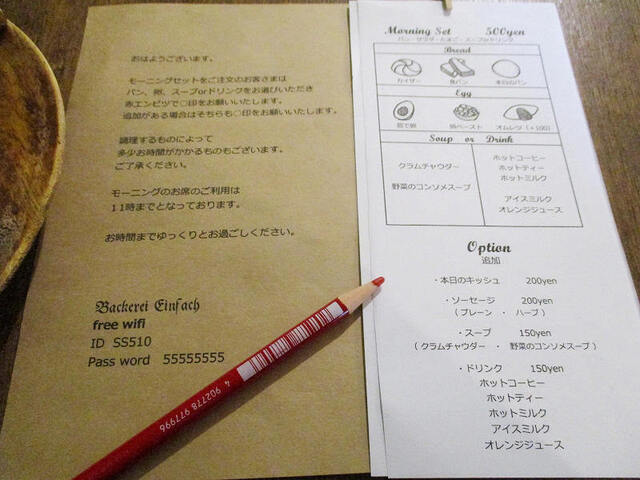 おはようございます。
モーニングセットをご注文のお客さまは
パン、卵、スープorドリンクをお選びいただき
赤エンピツで○印をお願いいたします。
追加がある場合はそちらも○印をお願いいたします。
調理するものによって
多少お時間がかかるものもございます。
ご了承ください。
モーニングのお席のご利用は
11時までとなっております。
お時間までゆっくりとお過ごしください。
Backerei Einfach
free wifi
ID SS510
Pass word 55555555
4 902778 977996
Morning Set 500yen
パン・サラダ・たまご・スープorドリンク
Bread
カイザー 食パン 本日のパン
Egg
茹で卵 卵ペースト オムレツ(+100)
Soup or Drink
クラムチャウダー
野菜のコンソメスープ
ホットコーヒー
ホットティー
ホットミルク
アイスミルク
オレンジジュース
Option
追加
・本日のキッシュ 200yen
・ソーセージ 200yen
(プレーン ・ ハーブ)
・スープ 150yen
(クラムチャウダー ・ 野菜のコンソメスープ)
・ドリンク 150yen
ホットコーヒー
ホットティー
ホットミルク
アイスミルク
オレンジジュース